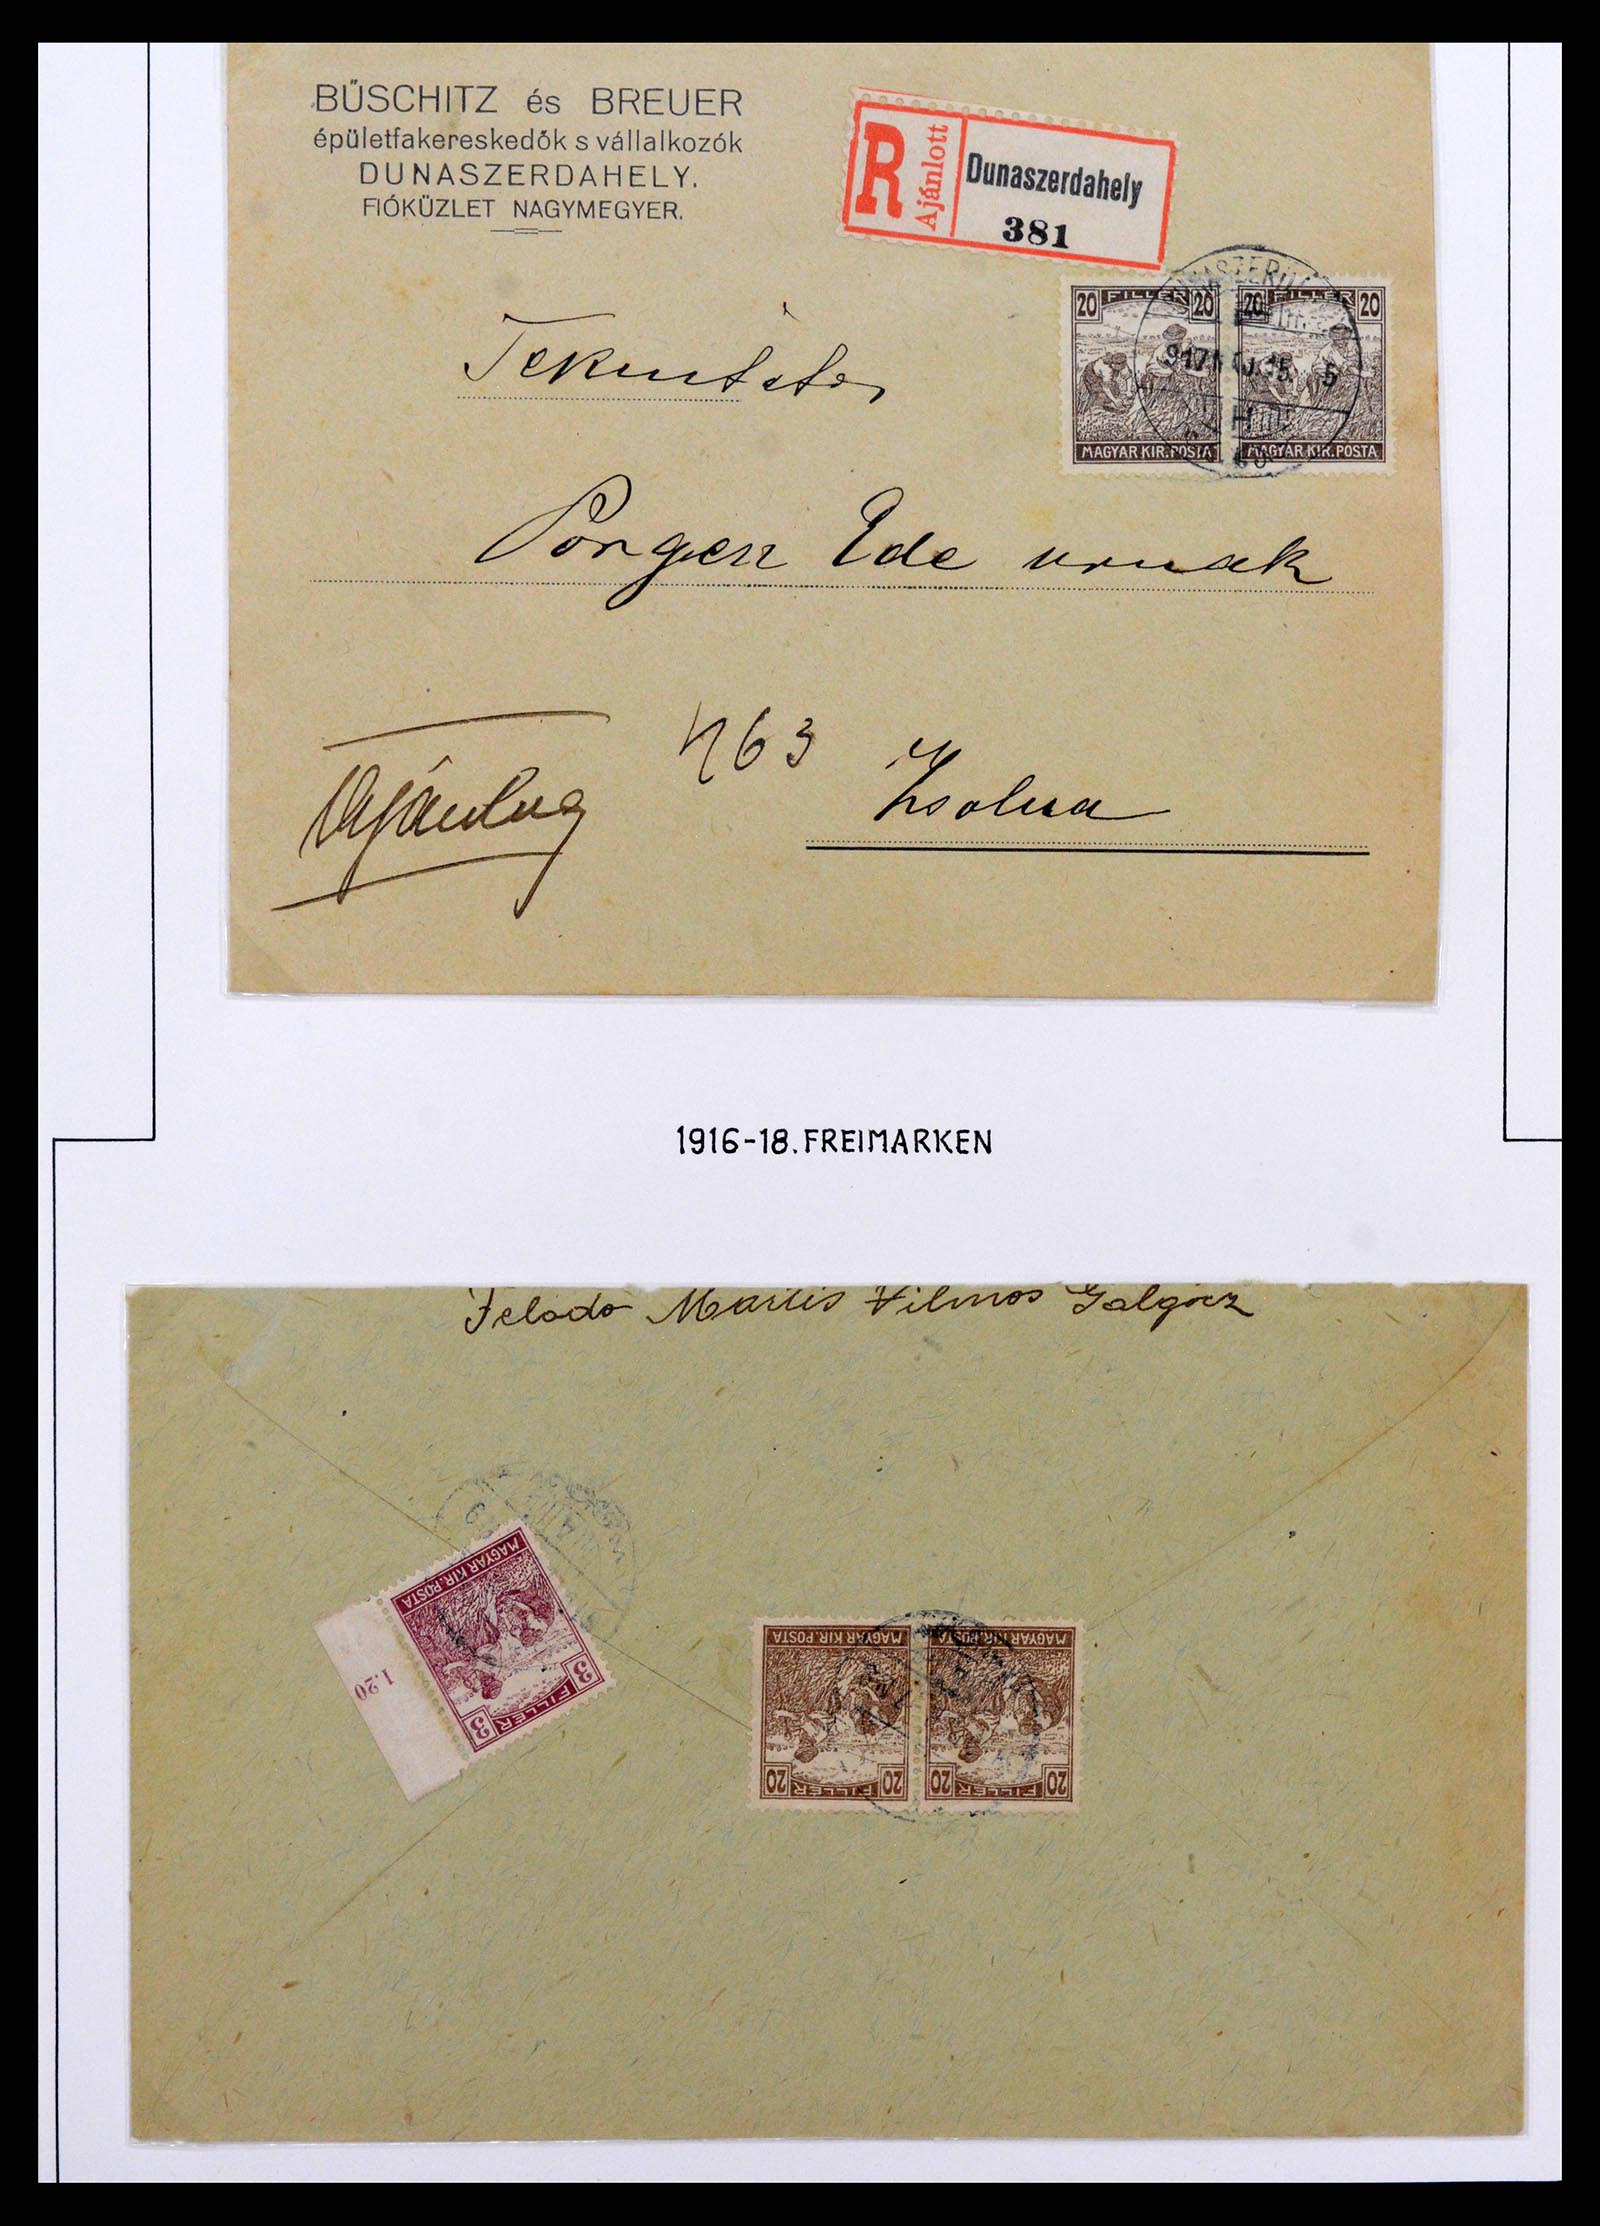 BÜSCHITZ és BREUER
épületfakereskedők s vállalkozók
DUNASZERDAHELY.
FIÓKÜZLET NAGYMEGYER.
R Ajánlott
Dunaszerdahely
381
20 FILLÉR 20
20 FILLÉR 20
917
15. 5
MAGYAR KIR. POSTA
MAGYAR KIR. POSTA
Ede urnak
763
Zsolna
Ajánlva
1916-18. FREIMARKEN
Feladó Vilmos Galgócz
MAGYAR KIR. POSTA
3 FILLÉR 3
1.20
MAGYAR KIR. POSTA
MAGYAR KIR. POSTA
20 FILLÉR 20
20 FILLÉR 20